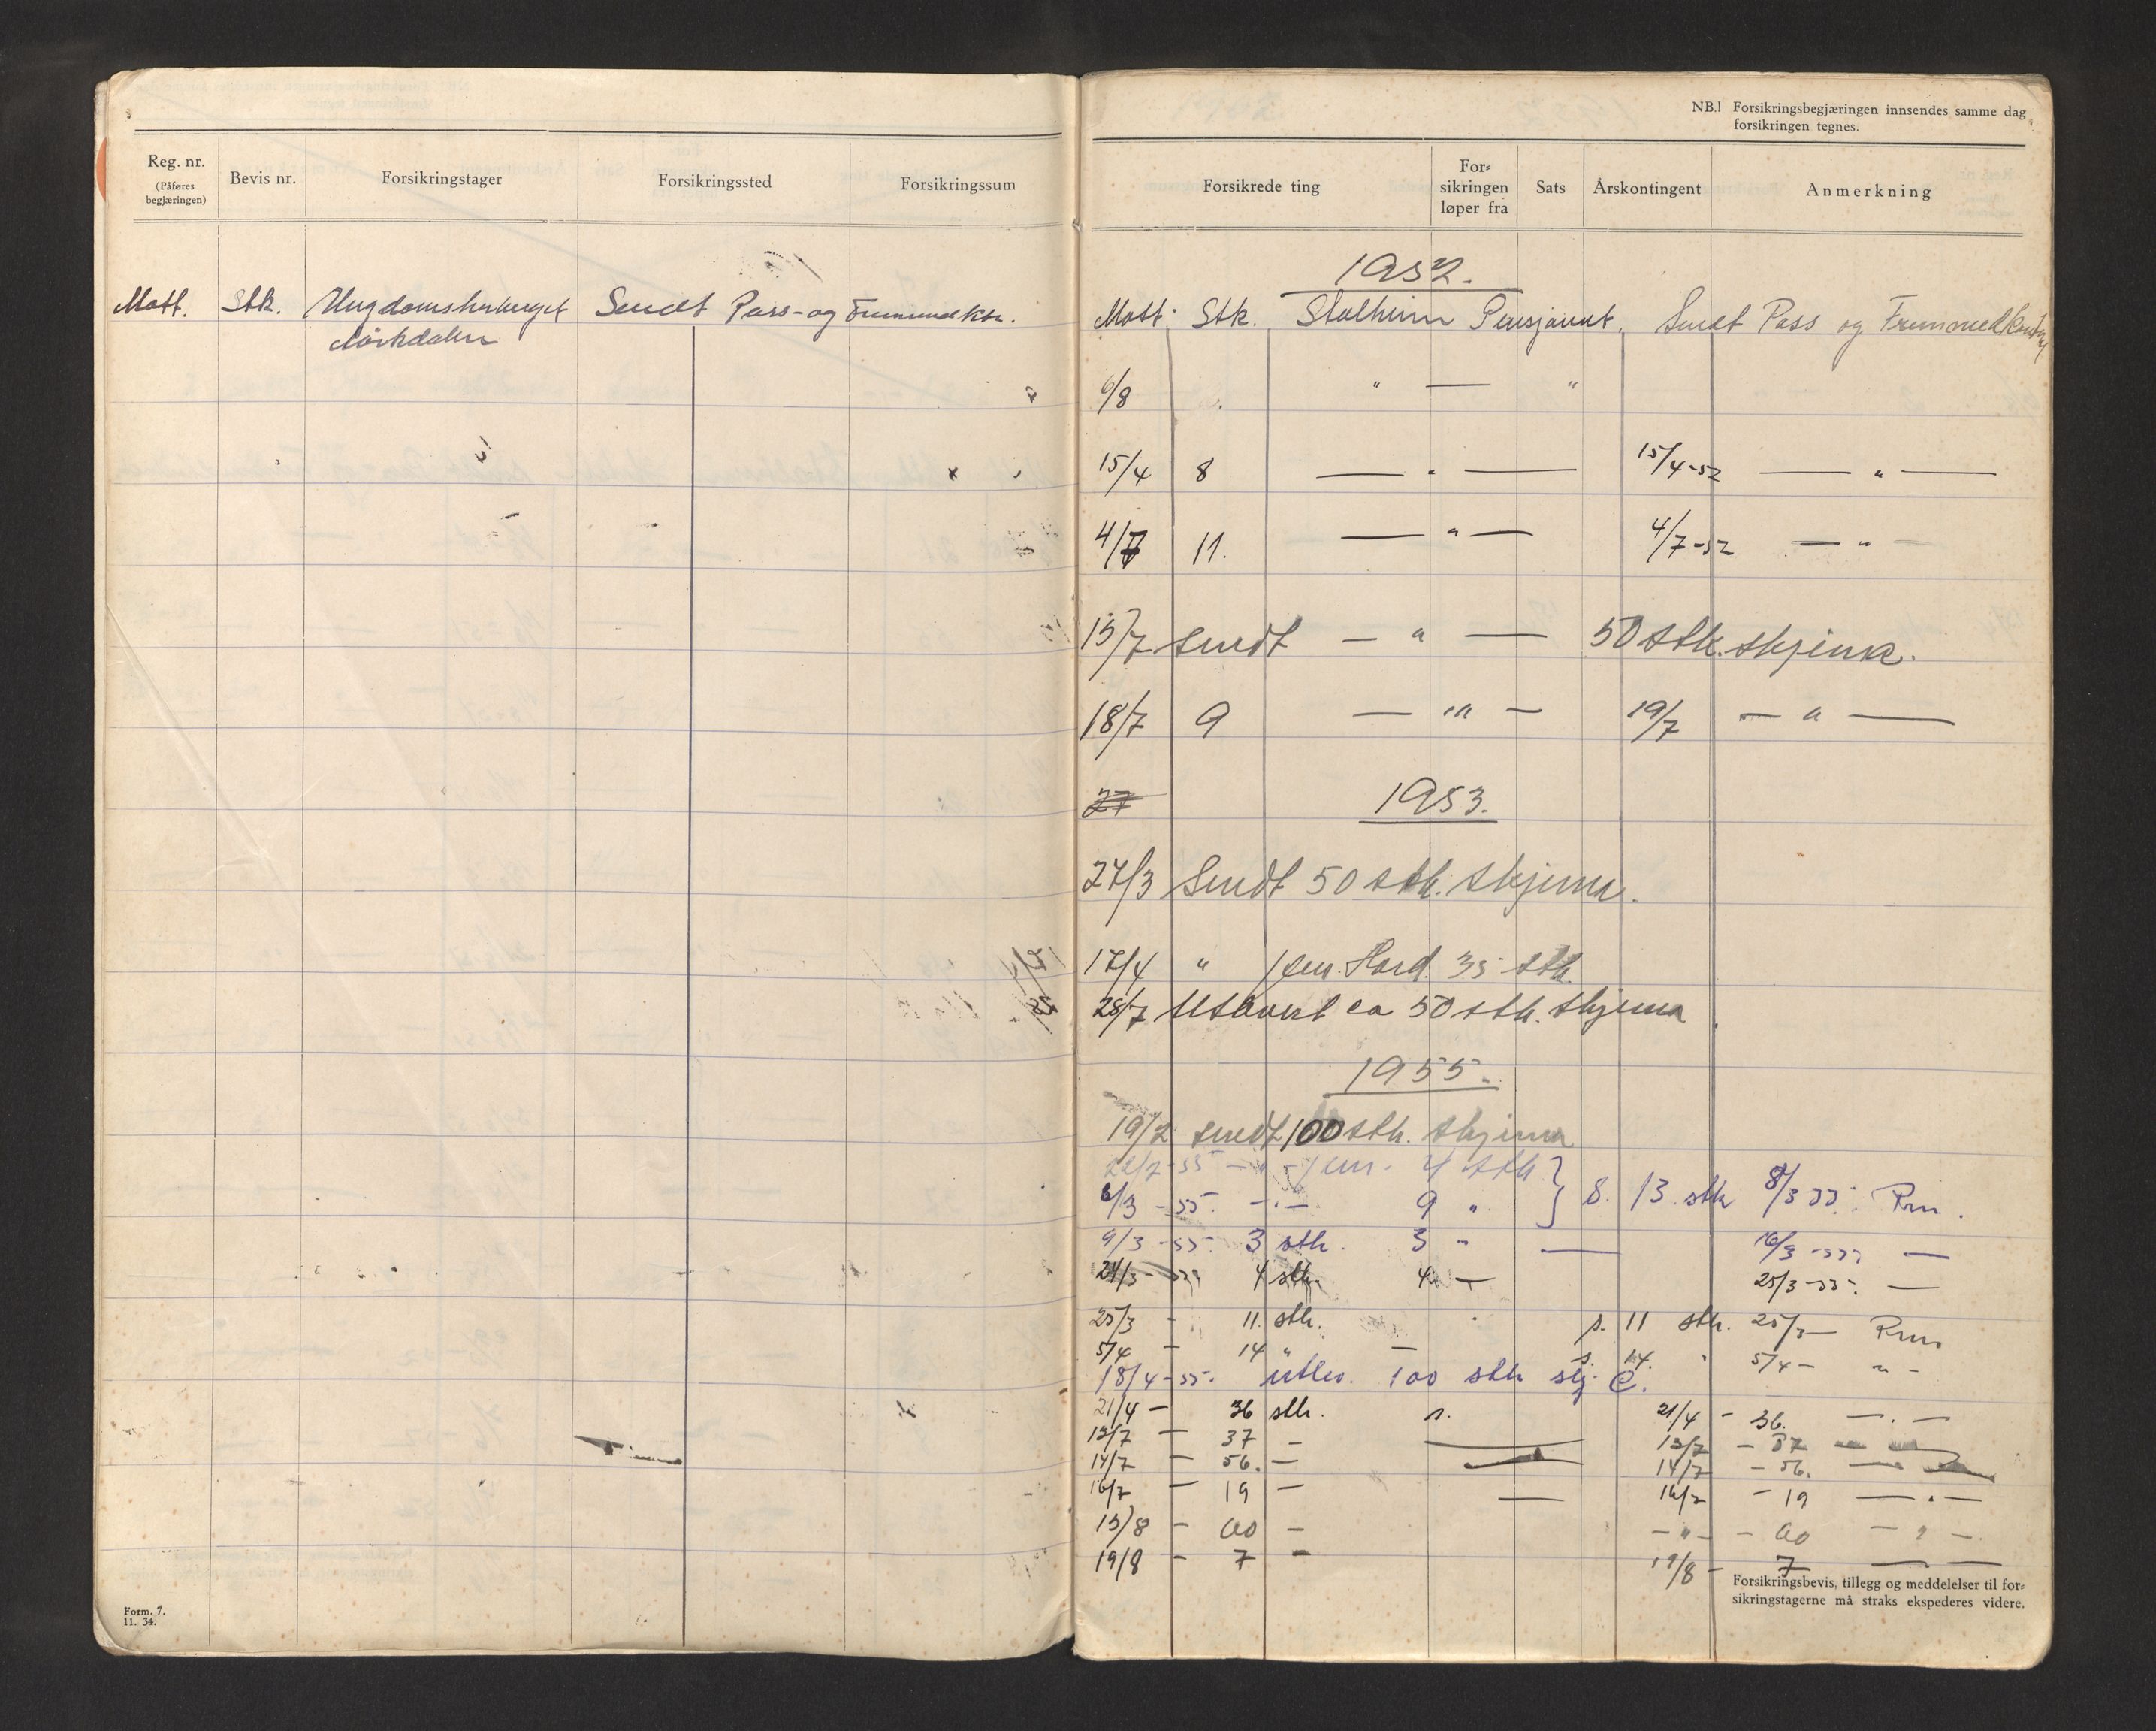 Reg. nr.
(Påføres
begjæringen)
Bevis nr.
Forsikringstager
Forsikringssted
Forsikringssum
Mott. Stk. Ungdomsherberget Sendt Pass- og Fremmedktr.
Form. 7.
11. 34.
NB! Forsikringsbegjæringen innsendes samme dag
forsikringen tegnes.
Forsikrede ting
For=
sikringen
løper fra
Sats
Årskontingent
Anmerkning
1952.
Mott. Stk. Stalheim Pensjonat. Sendt Pass og
6/8 " — "
15/4 8 — " — 15/4-52 — " —
4/7 11. — " — 4/7-52 — " —
15/7 sendt — " — 50 stk. skjema.
18/7 9 — " — 19/7 — " —
27 1953.
27/3 Sendt 50 stk. skjema.
17/4 " Hard. 35 stk.
28/7 Utlevert ca 50 stk. skjema
1955.
19/2 sendt 100 stk. skjema
4 stk
/3 -55. - " - 9 " } S. 13 stk 8/3 55.
9/3 -55. 3 stk. 3 " — —
24/3 - 4 stk. 4 — 25/3-55. —
25/3 - 11 stk. s. 11 stk. 25/3 —
5/4 - 14 " — s. 14. " 5/4 - " -
18/4-55. utlev. 100 stk skj. C.
21/4 — 36 stk. s. 21/4 - 36. — . —
13/7 — 37 — — 13/7 — 37 —
14/7 — 56. — — 14/7 — 56. —
16/7 — 19 — — 16/7 — 19 — " —
15/8 — — — " — — — " —
19/8 - 7 — 19/8 - 7 — —
Forsikringsbevis, tillegg og meddelelser til for=
sikringstagerne må straks ekspederes videre.